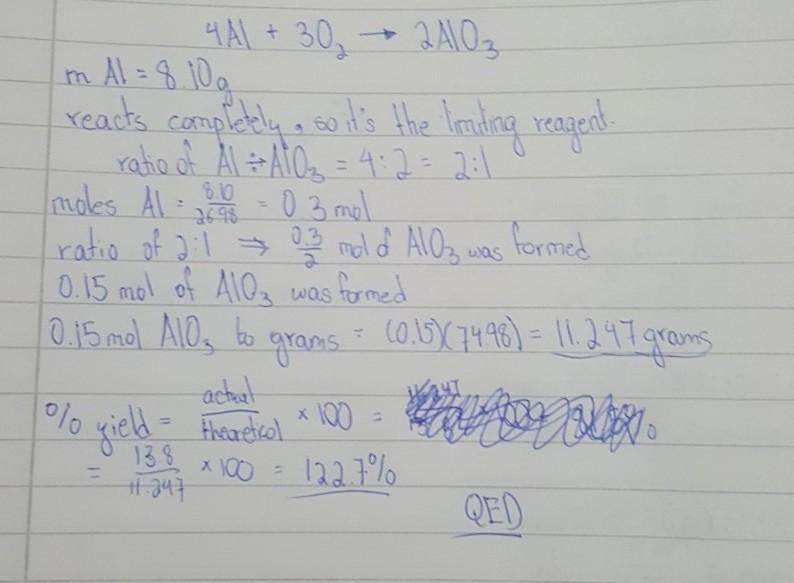 4Al + 3O₂ → 2AlO₃
m Al = 8.10g
reacts completely, so it's the limiting reagent.
ratio of Al ÷ AlO₃ = 4:2 = 2:1
moles Al = 8.10/26.98 = 0.3 mol
ratio of 2:1 ⇒ 0.3/2 mol of AlO₃ was formed
0.15 mol of AlO₃ was formed
0.15 mol AlO₃ to grams = (0.15)(74.98) = 11.247 grams
% yield = actual/theoretical × 100 =
= 13.8/11.247 × 100 = 122.7%
QED